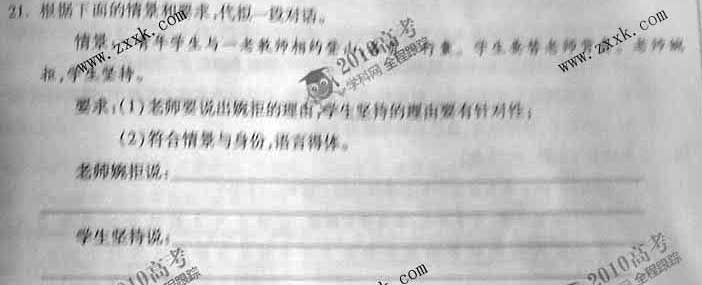 21. 根据下面的情景和要求,代拟一段对话。
情景: 青年学生与一老教师相约登山 有重 学生要替老师 老师婉
拒,学生坚持。
要求:(1)老师要说出婉拒的理由,学生坚持的理由要有针对性;
(2)符合情景与身份,语言得体。
老师婉拒说:
学生坚持说:
www.zxxk.com
www.zxxk.com
www.zxxk.com
2010高考
学科网 全程跟踪
2010高考
全程跟踪
2010高考
全程跟踪